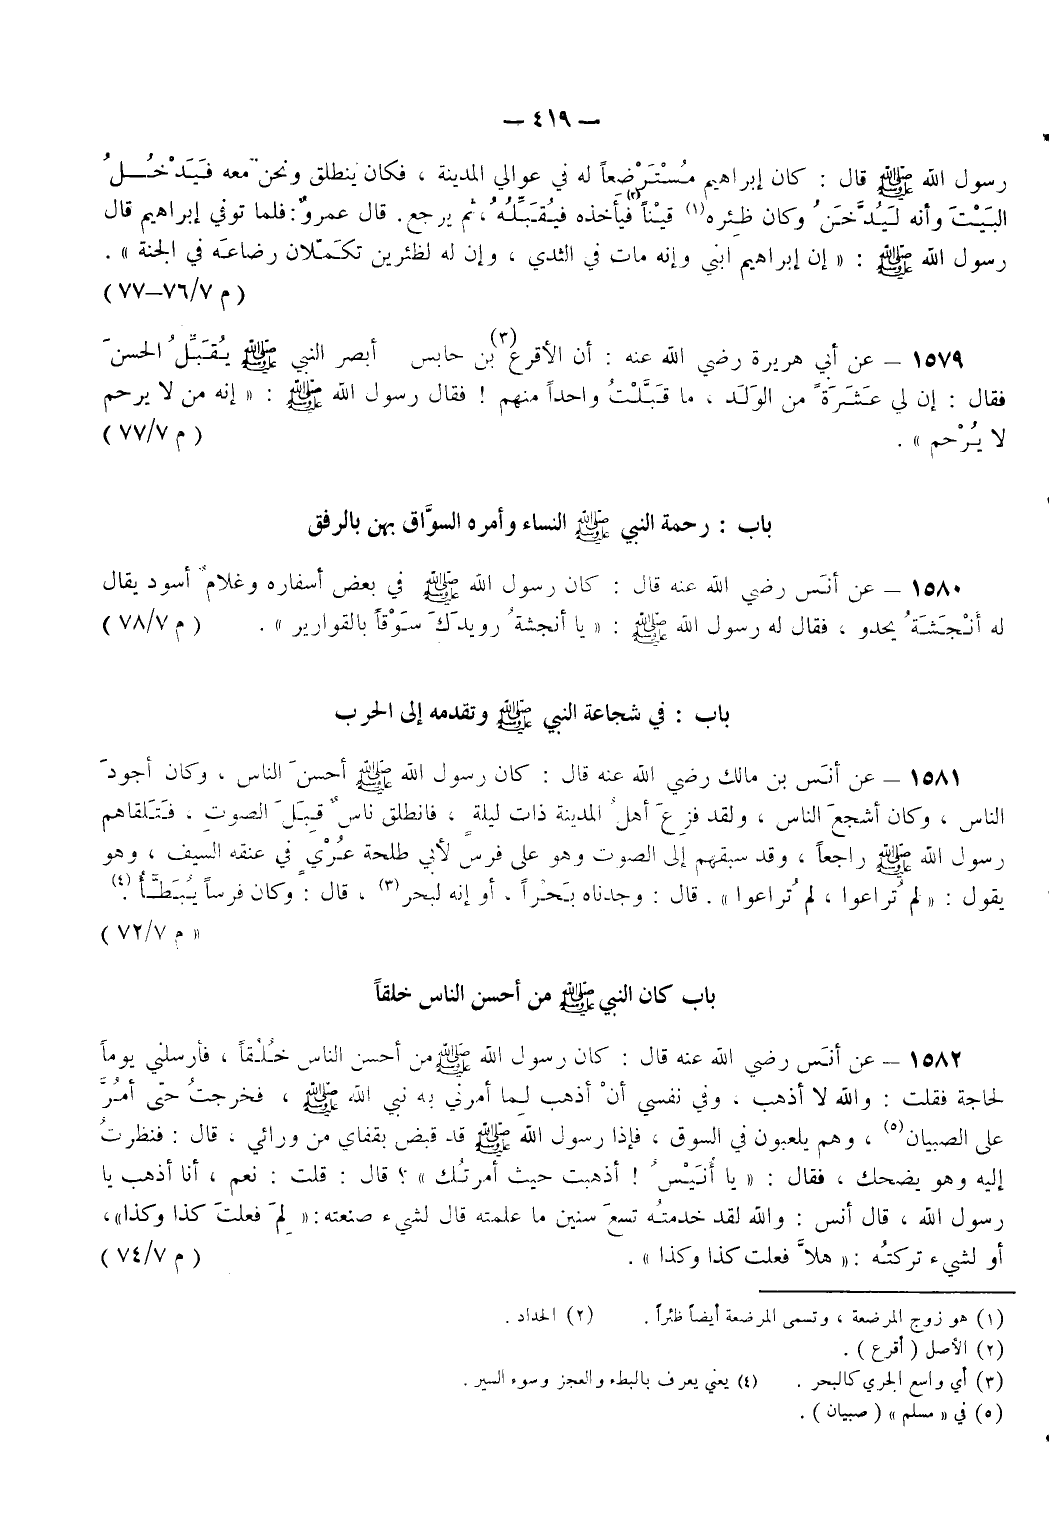 — ٤١٩ —
رسول الله ﷺ قال : كان إبراهيم مُسْتَرْضِعاً له في عوالي المدينة ، فكان ينطلق ونحن معه فَيَدْخُلُ
البَيْتَ وأنه لَيُدَّخَنُ وكان ظِئره(١) قَيْناً(٢) فيأخذه فيُقَبِّلُهُ ، ثم يرجع . قال عمروٌ : فلما توفي إبراهيم قال
رسول الله ﷺ : « إن إبراهيم ابني وإنه مات في الثدي ، وإن له لظئرين تكمّلان رضاعَه في الجنة » .
( م ٧/٧٦–٧٧ )
١٥٧٩ – عن أبي هريرة رضي الله عنه : أن الأقرع(٣) بن حابس أبصر النبي ﷺ يُقَبِّلُ الحسنَ
فقال : إن لي عَشَرَةً من الوَلَد ، ما قَبَّلْتُ واحداً منهم ! فقال رسول الله ﷺ : « إنه من لا يرحم
لا يُرْحم » . ( م ٧/٧٧ )
باب : رحمة النبي ﷺ النساء وأمره السوَّاق بهن بالرفق
١٥٨٠ – عن أنَس رضي الله عنه قال : كان رسول الله ﷺ في بعض أسفاره وغلامٌ أسود يقال
له أنْجَشَةُ يحدو ، فقال له رسول الله ﷺ : « يا أنجشةُ رويدَكَ سَوْقاً بالقوارير » . ( م ٧/٧٨ )
باب : في شجاعة النبي ﷺ وتقدمه إلى الحرب
١٥٨١ – عن أنَس بن مالك رضي الله عنه قال : كان رسول الله ﷺ أحسنَ الناس ، وكان أجودَ
الناس ، وكان أشجعَ الناس ، ولقد فزِعَ أهلُ المدينة ذات ليلةٍ ، فانطلق ناسٌ قِبَلَ الصوتِ ، فَتَلقاهم
رسول الله ﷺ راجعاً ، وقد سبقهم إلى الصوت وهو على فرس لأبي طلحة عُرْيٍ في عنقه السيف ، وهو
يقول : « لم تُراعوا ، لم تُراعوا » . قال : وجدناه بَحْراً ، أو إنه لبحر(٣) ، قال : وكان فرساً يُبَطَّأُ(٤) .
« م ٧/٧٢ )
باب كان النبي ﷺ من أحسن الناس خلقاً
١٥٨٢ – عن أنَس رضي الله عنه قال : كان رسول الله ﷺ من أحسن الناس خُلُقاً ، فأرسلني يوماً
لحاجة فقلت : والله لا أذهب ، وفي نفسي أنْ أذهب لِما أمرني به نبي الله ﷺ ، فخرجتُ حتى أمُرَّ
على الصبيان(٥) ، وهم يلعبون في السوق ، فإذا رسول الله ﷺ قد قبض بقفاي من ورائي ، قال : فنظرتُ
إليه وهو يضحك ، فقال : « يا أُنَيْسُ ! أذهبت حيث أمرتُك » ؟ قال : قلت : نعم ، أنا أذهب يا
رسول الله ، قال أنس : والله لقد خدمتُه تسعَ سنين ما علمته قال لشيء صنعته : « لِمَ فعلتَ كذا وكذا» ،
أو لشيء تركتُه : « هلاَّ فعلت كذا وكذا » . ( م ٧/٧٤ )
(١) هو زوج المرضعة ، وتسمى المرضعة أيضاً ظئراً . (٢) الحداد .
(٢) الأصل ( أقرع ) .
(٣) أي واسع الجري كالبحر . (٤) يعني يعرف بالبطء والعجز وسوء السير .
(٥) في « مسلم » ( صبيان ) .